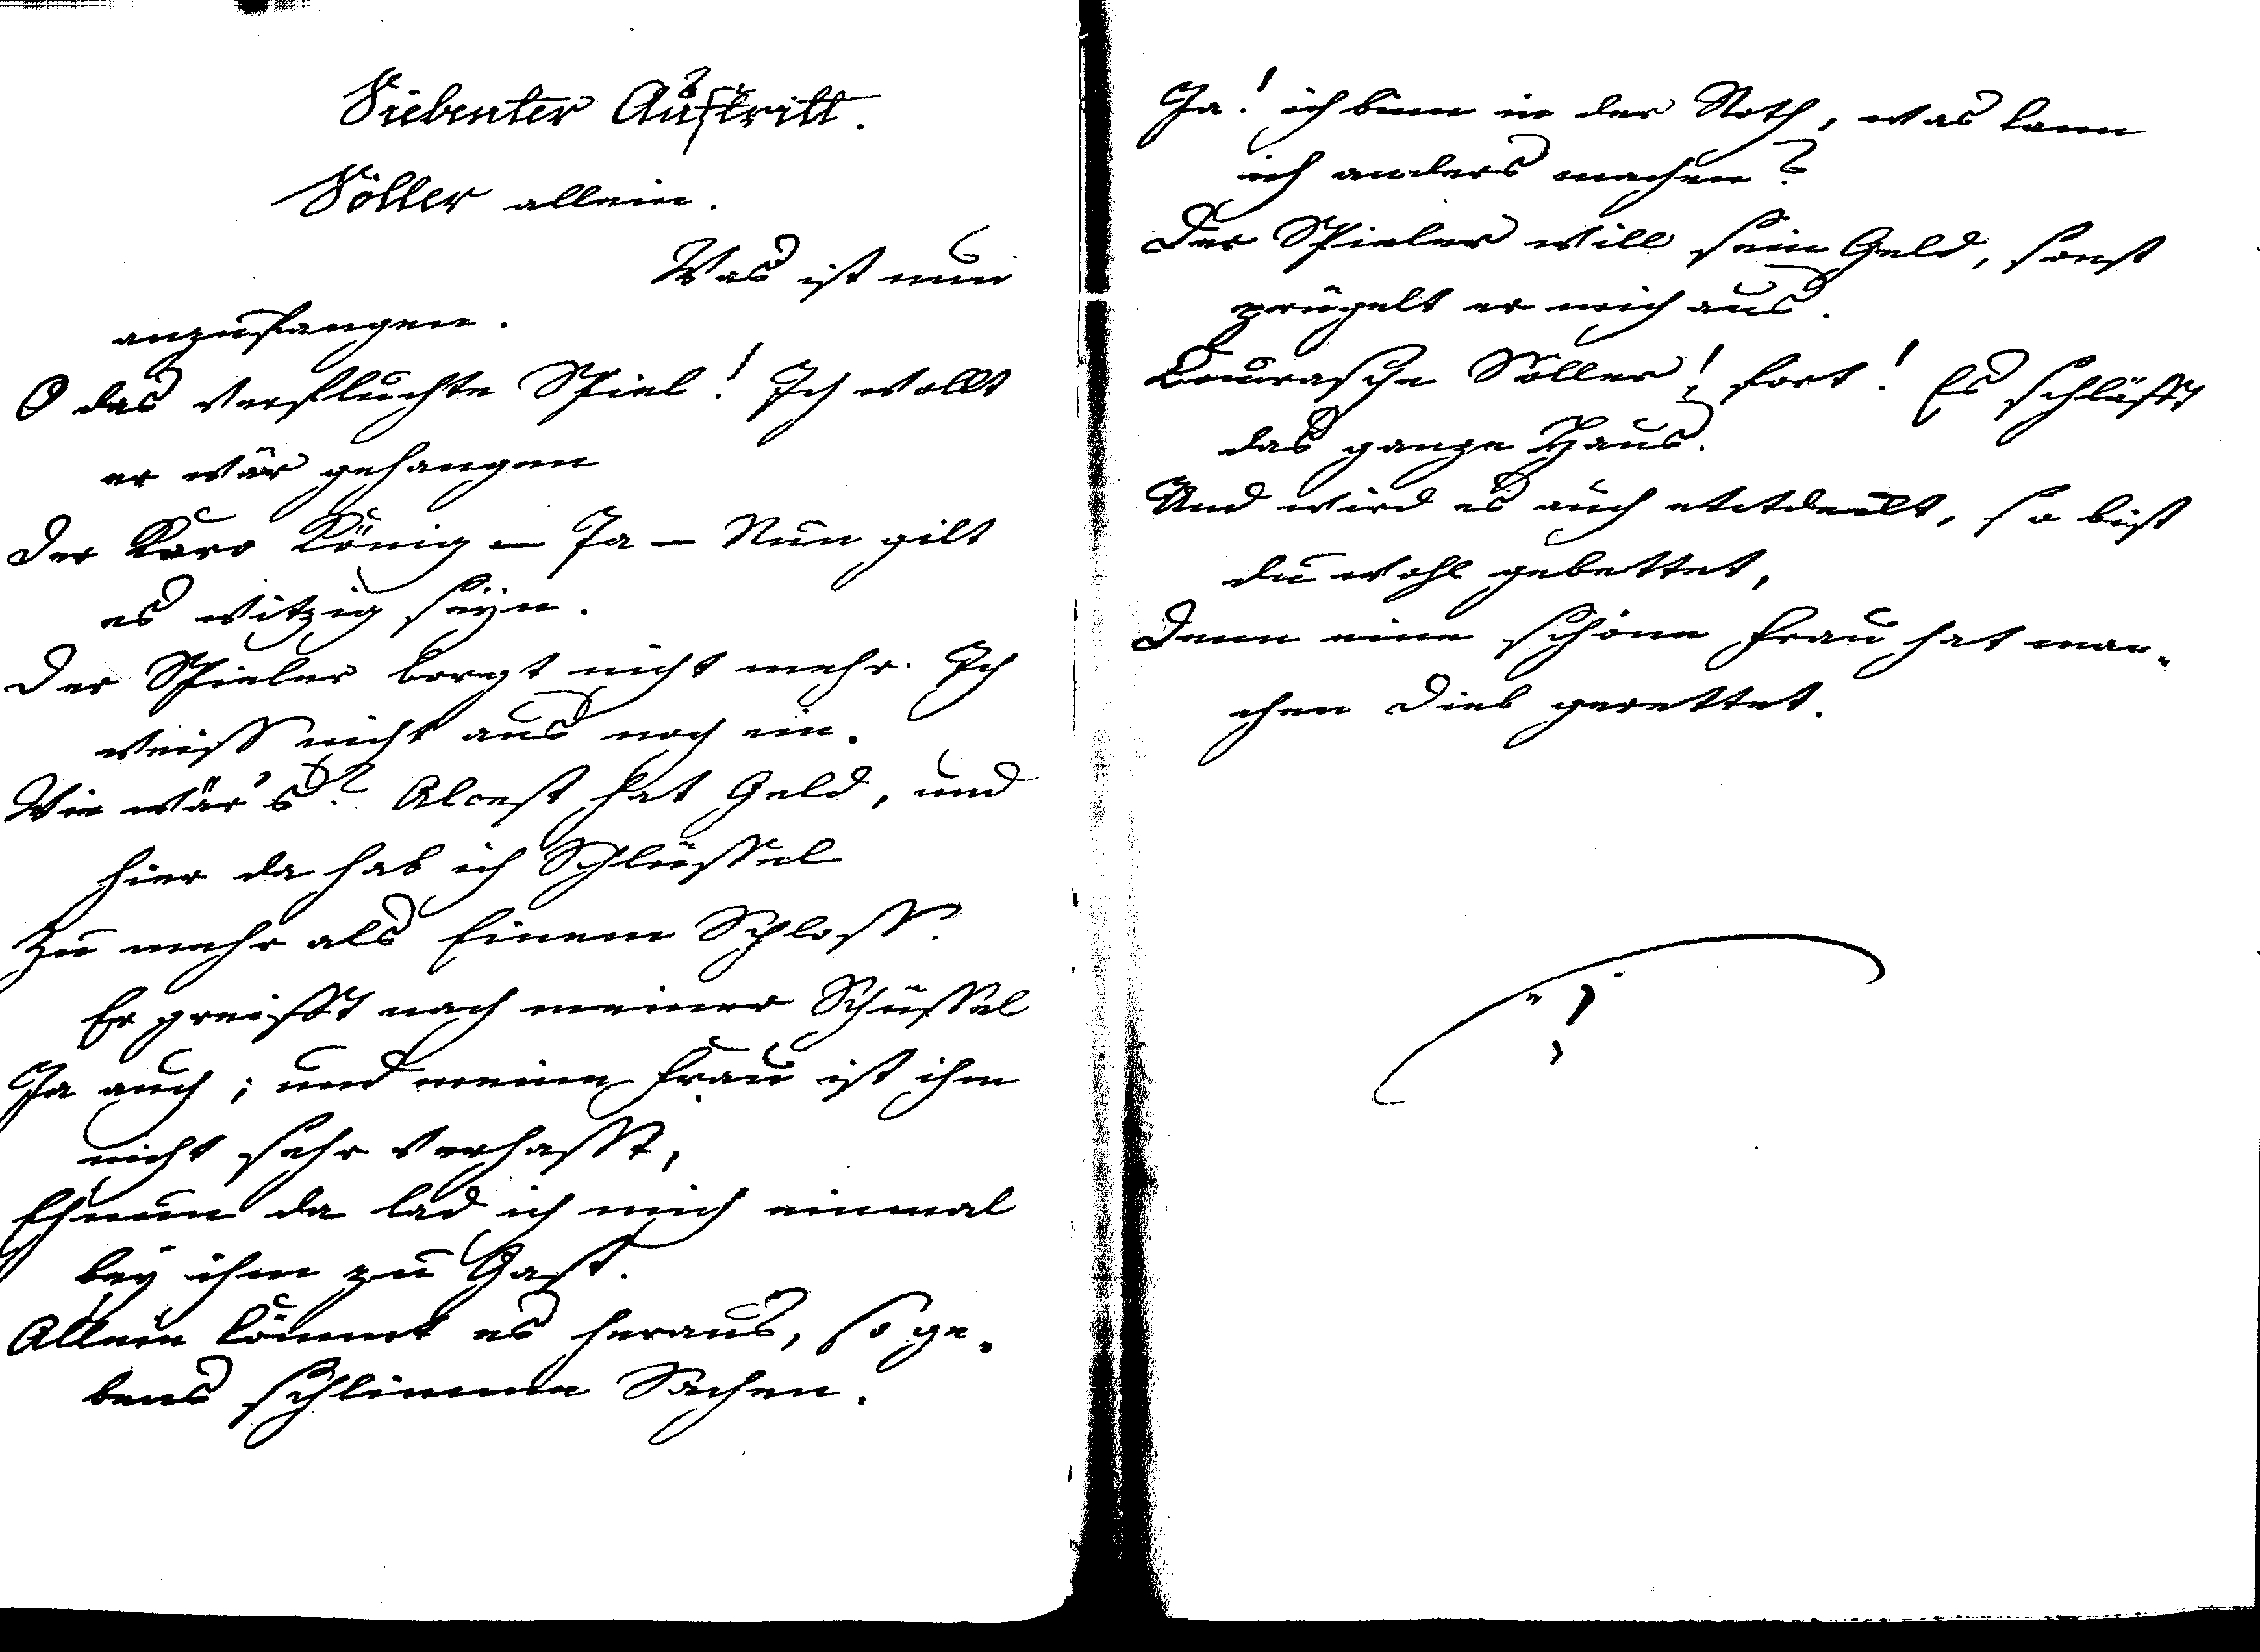 Siebenter Auftritt.
Söller allein.
Was ist nun
anzufangen.
O das verfluchte Spiel! Ich wollt
er wär gehangen
Der Karo König — Ja — Nun gilt
es witzig seyn.
Der Spieler borgt nicht mehr. Ich
weiss nicht aus noch ein.
Wie wär's? Alcest hat Geld, und
hier da hab ich Schlüssel
Zu mehr als Einem Schloss.
Er greifft nach meiner Schüssel
Ja auch; und meine Frau ist ihm
nicht sehr verhasst,
Eh nun da lad ich mich einmal
bey ihm zu Gast.
Allein kömmt es heraus, so ge-
bens schlimme Sachen.
Ja! ich binn in der Noth, was kann
ich anders machen?
Der Spieler will sein Geld, sonst
prügelt er mich aus.
Courasche Söller! fort! Es schläfft
das ganze Haus.
Und wird es auch entdeckt, so bist
du wohl gebettet,
Denn eine schöne Frau hat man-
chen Dieb gerettet.